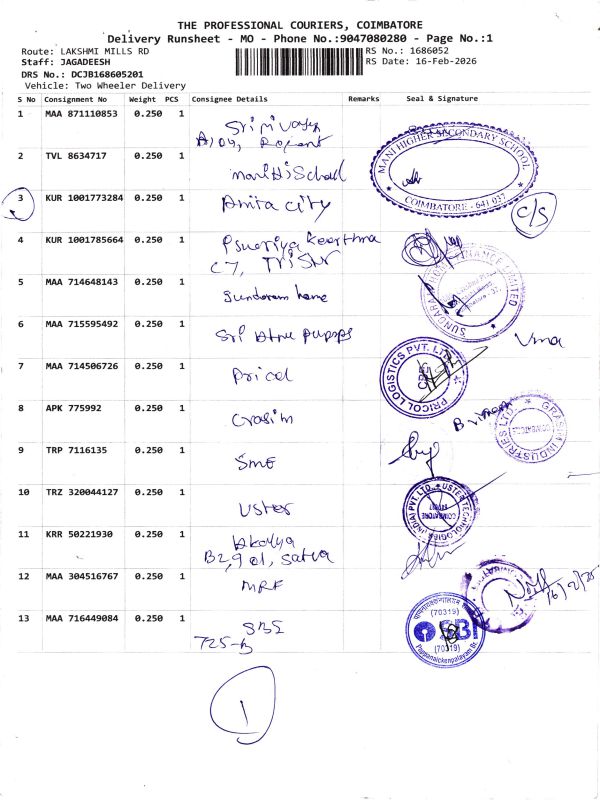 THE PROFESSIONAL COURIERS, COIMBATORE
Delivery Runsheet - MO - Phone No.:9047080280 - Page No.:1
Route: LAKSHMI MILLS RD
RS No.: 1686052
Staff: JAGADEESH
RS Date: 16-Feb-2026
DRS No.: DCJB168605201
Vehicle: Two Wheeler Delivery
S No Consignment No Weight PCS Consignee Details Remarks Seal & Signature
1 MAA 871110853 0.250 1
A104,
2 TVL 8634717 0.250 1 mani Hi School
MANI HIGHER SECONDARY SCHOOL
COIMBATORE - 641 037
3 KUR 1001773284 0.250 1 Amita city
C/S
4 KUR 1001785664 0.250 1
C7,
5 MAA 714648143 0.250 1 Sundaram home
SUNDARAM HOME FINANCE LIMITED
6 MAA 715595492 0.250 1 Sri
Uma
7 MAA 714506726 0.250 1 Pricol
PRICOL LOGISTICS PVT. LTD.
8 APK 775992 0.250 1 Grasim
GRASIM INDUSTRIES LTD.
COIMBATORE
9 TRP 7116135 0.250 1 SME
10 TRZ 320044127 0.250 1 Uster
USTER TECHNOLOGIES (INDIA) PVT. LTD.
COIMBATORE
11 KRR 50221930 0.250 1
B2, 901, Satva
12 MAA 304516767 0.250 1 MRF
13 MAA 716449084 0.250 1 SBI
725-B
(70319)
SBI
(70319)
Pappanaickenpalayam Br.
1